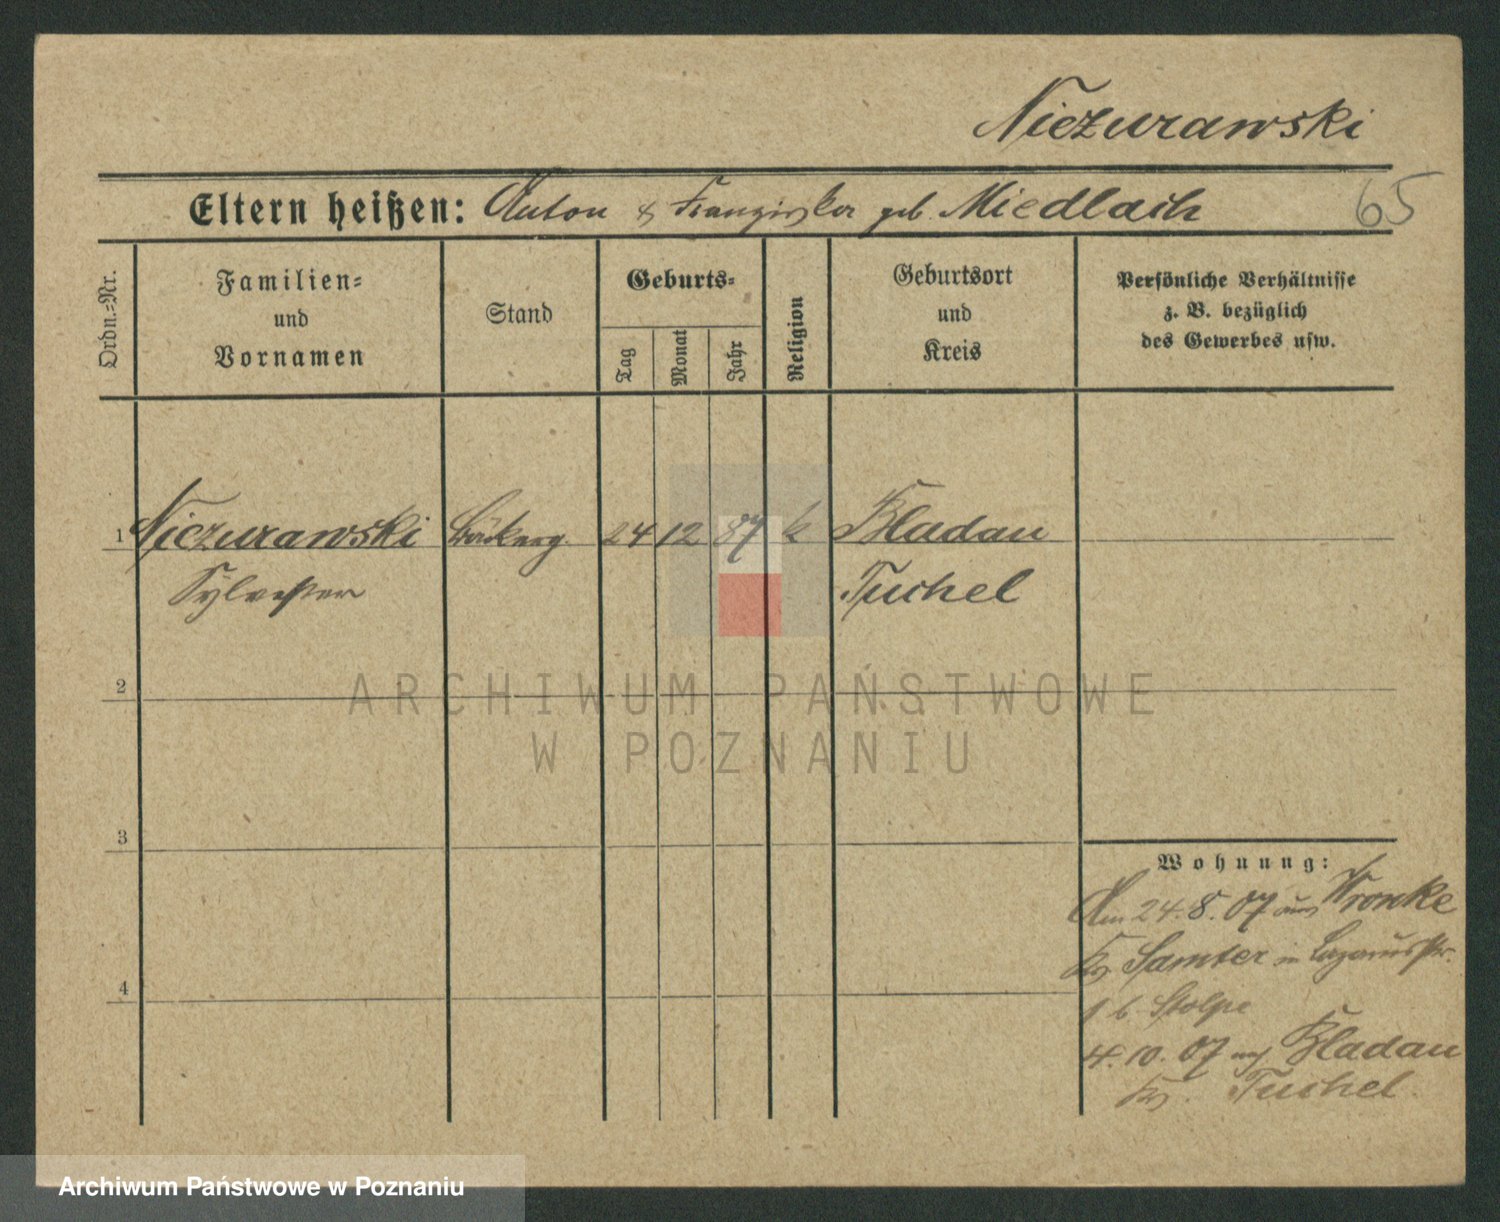 Niezurawski
65
Eltern heißen: Anton & Franziska geb. Miedlach
Ordn.-Nr.
Familien-
und
Vornamen
Stand
Geburts-
Tag
Monat
Jahr
Religion
Geburtsort
und
Kreis
Persönliche Verhältnisse
z. B. bezüglich
des Gewerbes usw.
1 Niezurawski Bäckerg. 24 12 87 k Bladau
Sylvester Tuchel
2
3
4
Wohnung:
Am 24. 8. 07 aus Wronke
Kr Samter in Lazarusstr.
1 b. Stolpe
4. 10. 07 nach Bladau
Kr. Tuchel.
ARCHIWUM PAŃSTWOWE
W POZNANIU
Archiwum Państwowe w Poznaniu